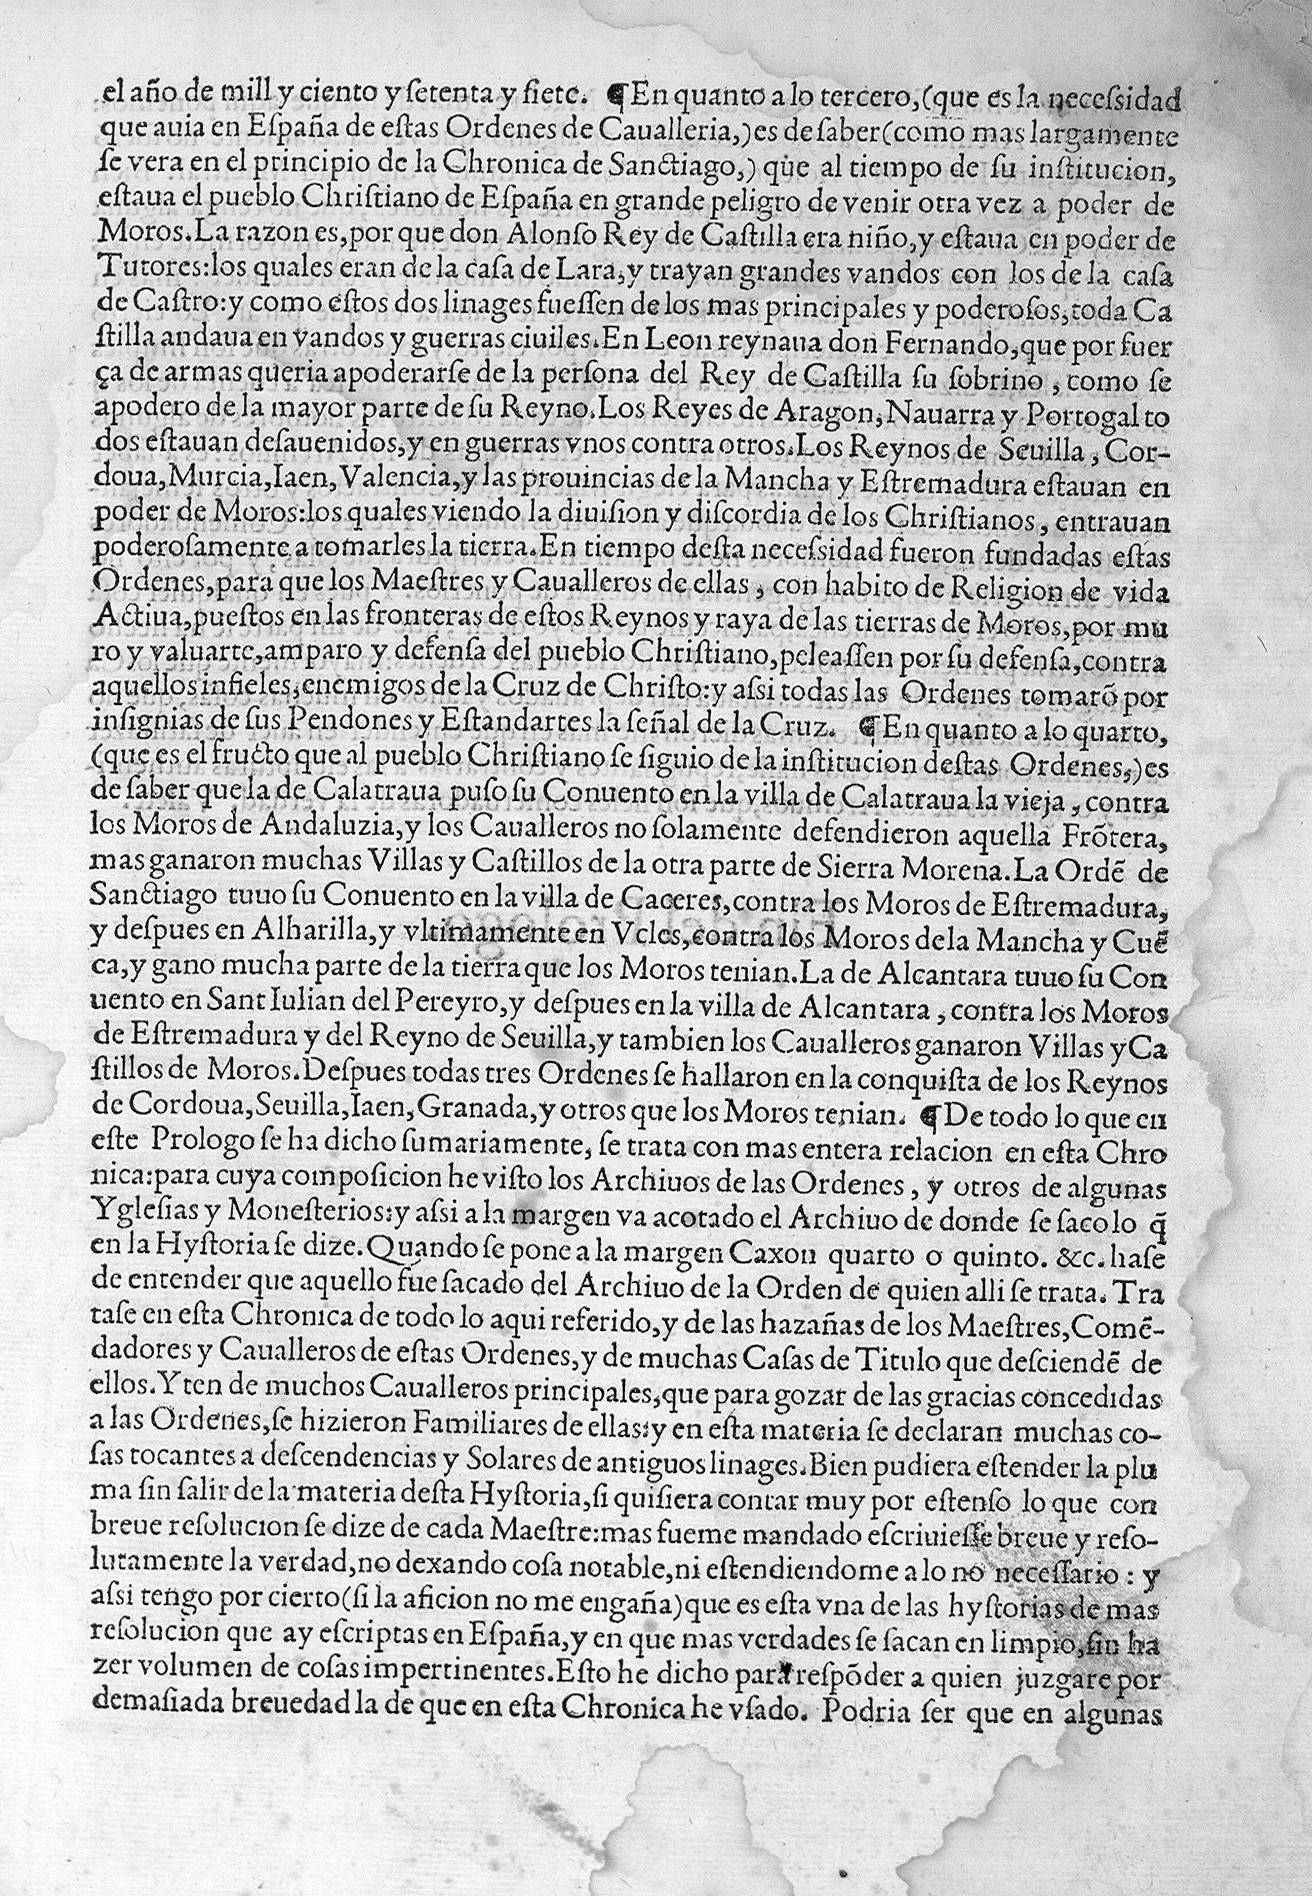 el año de mill y ciento y ſetenta y ſiete. ¶ En quanto a lo tercero, (que es la neceſsidad
que auia en Eſpaña de eſtas Ordenes de Caualleria,) es de ſaber (como mas largamente
ſe vera en el principio de la Chronica de Sanctiago,) que al tiempo de ſu inſtitucion,
eſtaua el pueblo Chriſtiano de Eſpaña en grande peligro de venir otra vez a poder de
Moros. La razon es, por que don Alonſo Rey de Caſtilla era niño, y eſtaua en poder de
Tutores: los quales eran de la caſa de Lara, y trayan grandes vandos con los de la caſa
de Caſtro: y como eſtos dos linages fueſſen de los mas principales y poderoſos, toda Ca
ſtilla andaua en vandos y guerras ciuiles. En Leon reynaua don Fernando, que por fuer
ça de armas queria apoderarſe de la perſona del Rey de Caſtilla ſu ſobrino, como ſe
apodero de la mayor parte de ſu Reyno. Los Reyes de Aragon, Nauarra y Portogal to
dos eſtauan deſauenidos, y en guerras vnos contra otros. Los Reynos de Seuilla, Cor-
doua, Murcia, Iaen, Valencia, y las prouincias de la Mancha y Eſtremadura eſtauan en
poder de Moros: los quales viendo la diuiſion y diſcordia de los Chriſtianos, entrauan
poderoſamente a tomarles la tierra. En tiempo deſta neceſsidad fueron fundadas eſtas
Ordenes, para que los Maeſtres y Caualleros de ellas, con habito de Religion de vida
Actiua, pueſtos en las fronteras de eſtos Reynos y raya de las tierras de Moros, por mu
ro y valuarte, amparo y defenſa del pueblo Chriſtiano, peleaſſen por ſu defenſa, contra
aquellos infieles, enemigos de la Cruz de Chriſto: y aſsi todas las Ordenes tomarõ por
inſignias de ſus Pendones y Eſtandartes la ſeñal de la Cruz. ¶ En quanto a lo quarto,
(que es el fructo que al pueblo Chriſtiano ſe ſiguio de la inſtitucion deſtas Ordenes,) es
de ſaber que la de Calatraua puſo ſu Conuento en la villa de Calatraua la vieja, contra
los Moros de Andaluzia, y los Caualleros no ſolamente defendieron aquella Frõtera,
mas ganaron muchas Villas y Caſtillos de la otra parte de Sierra Morena. La Ordẽ de
Sanctiago tuuo ſu Conuento en la villa de Caceres, contra los Moros de Eſtremadura,
y deſpues en Alharilla, y vltimamente en Vcles, contra los Moros dela Mancha y Cuẽ
ca, y gano mucha parte de la tierra que los Moros tenian. La de Alcantara tuuo ſu Con
uento en Sant Iulian del Pereyro, y deſpues en la villa de Alcantara, contra los Moros
de Eſtremadura y del Reyno de Seuilla, y tambien los Caualleros ganaron Villas y Ca
ſtillos de Moros. Deſpues todas tres Ordenes ſe hallaron en la conquiſta de los Reynos
de Cordoua, Seuilla, Iaen, Granada, y otros que los Moros tenian. ¶ De todo lo que en
eſte Prologo ſe ha dicho ſumariamente, ſe trata con mas entera relacion en eſta Chro
nica: para cuya compoſicion he viſto los Archiuos de las Ordenes, y otros de algunas
Ygleſias y Moneſterios: y aſsi a la margen va acotado el Archiuo de donde ſe ſaco lo q̃
en la Hyſtoria ſe dize. Quando ſe pone a la margen Caxon quarto o quinto. &c. haſe
de entender que aquello fue ſacado del Archiuo de la Orden de quien alli ſe trata. Tra
taſe en eſta Chronica de todo lo aqui referido, y de las hazañas de los Maeſtres, Comẽ-
dadores y Caualleros de eſtas Ordenes, y de muchas Caſas de Titulo que deſciendẽ de
ellos. Yten de muchos Caualleros principales, que para gozar de las gracias concedidas
a las Ordenes, ſe hizieron Familiares de ellas: y en eſta materia ſe declaran muchas co-
ſas tocantes a deſcendencias y Solares de antiguos linages. Bien pudiera eſtender la plu
ma ſin ſalir de la materia deſta Hyſtoria, ſi quiſiera contar muy por eſtenſo lo que con
breue reſolucion ſe dize de cada Maeſtre: mas fueme mandado eſcriuieſſe breue y reſo-
lutamente la verdad, no dexando coſa notable, ni eſtendiendome a lo no neceſſario: y
aſsi tengo por cierto (ſi la aficion no me engaña) que es eſta vna de las hyſtorias de mas
reſolucion que ay eſcriptas en Eſpaña, y en que mas verdades ſe ſacan en limpio, ſin ha
zer volumen de coſas impertinentes. Eſto he dicho para reſpõder a quien juzgare por
demaſiada breuedad la de que en eſta Chronica he vſado. Podria ſer que en algunas